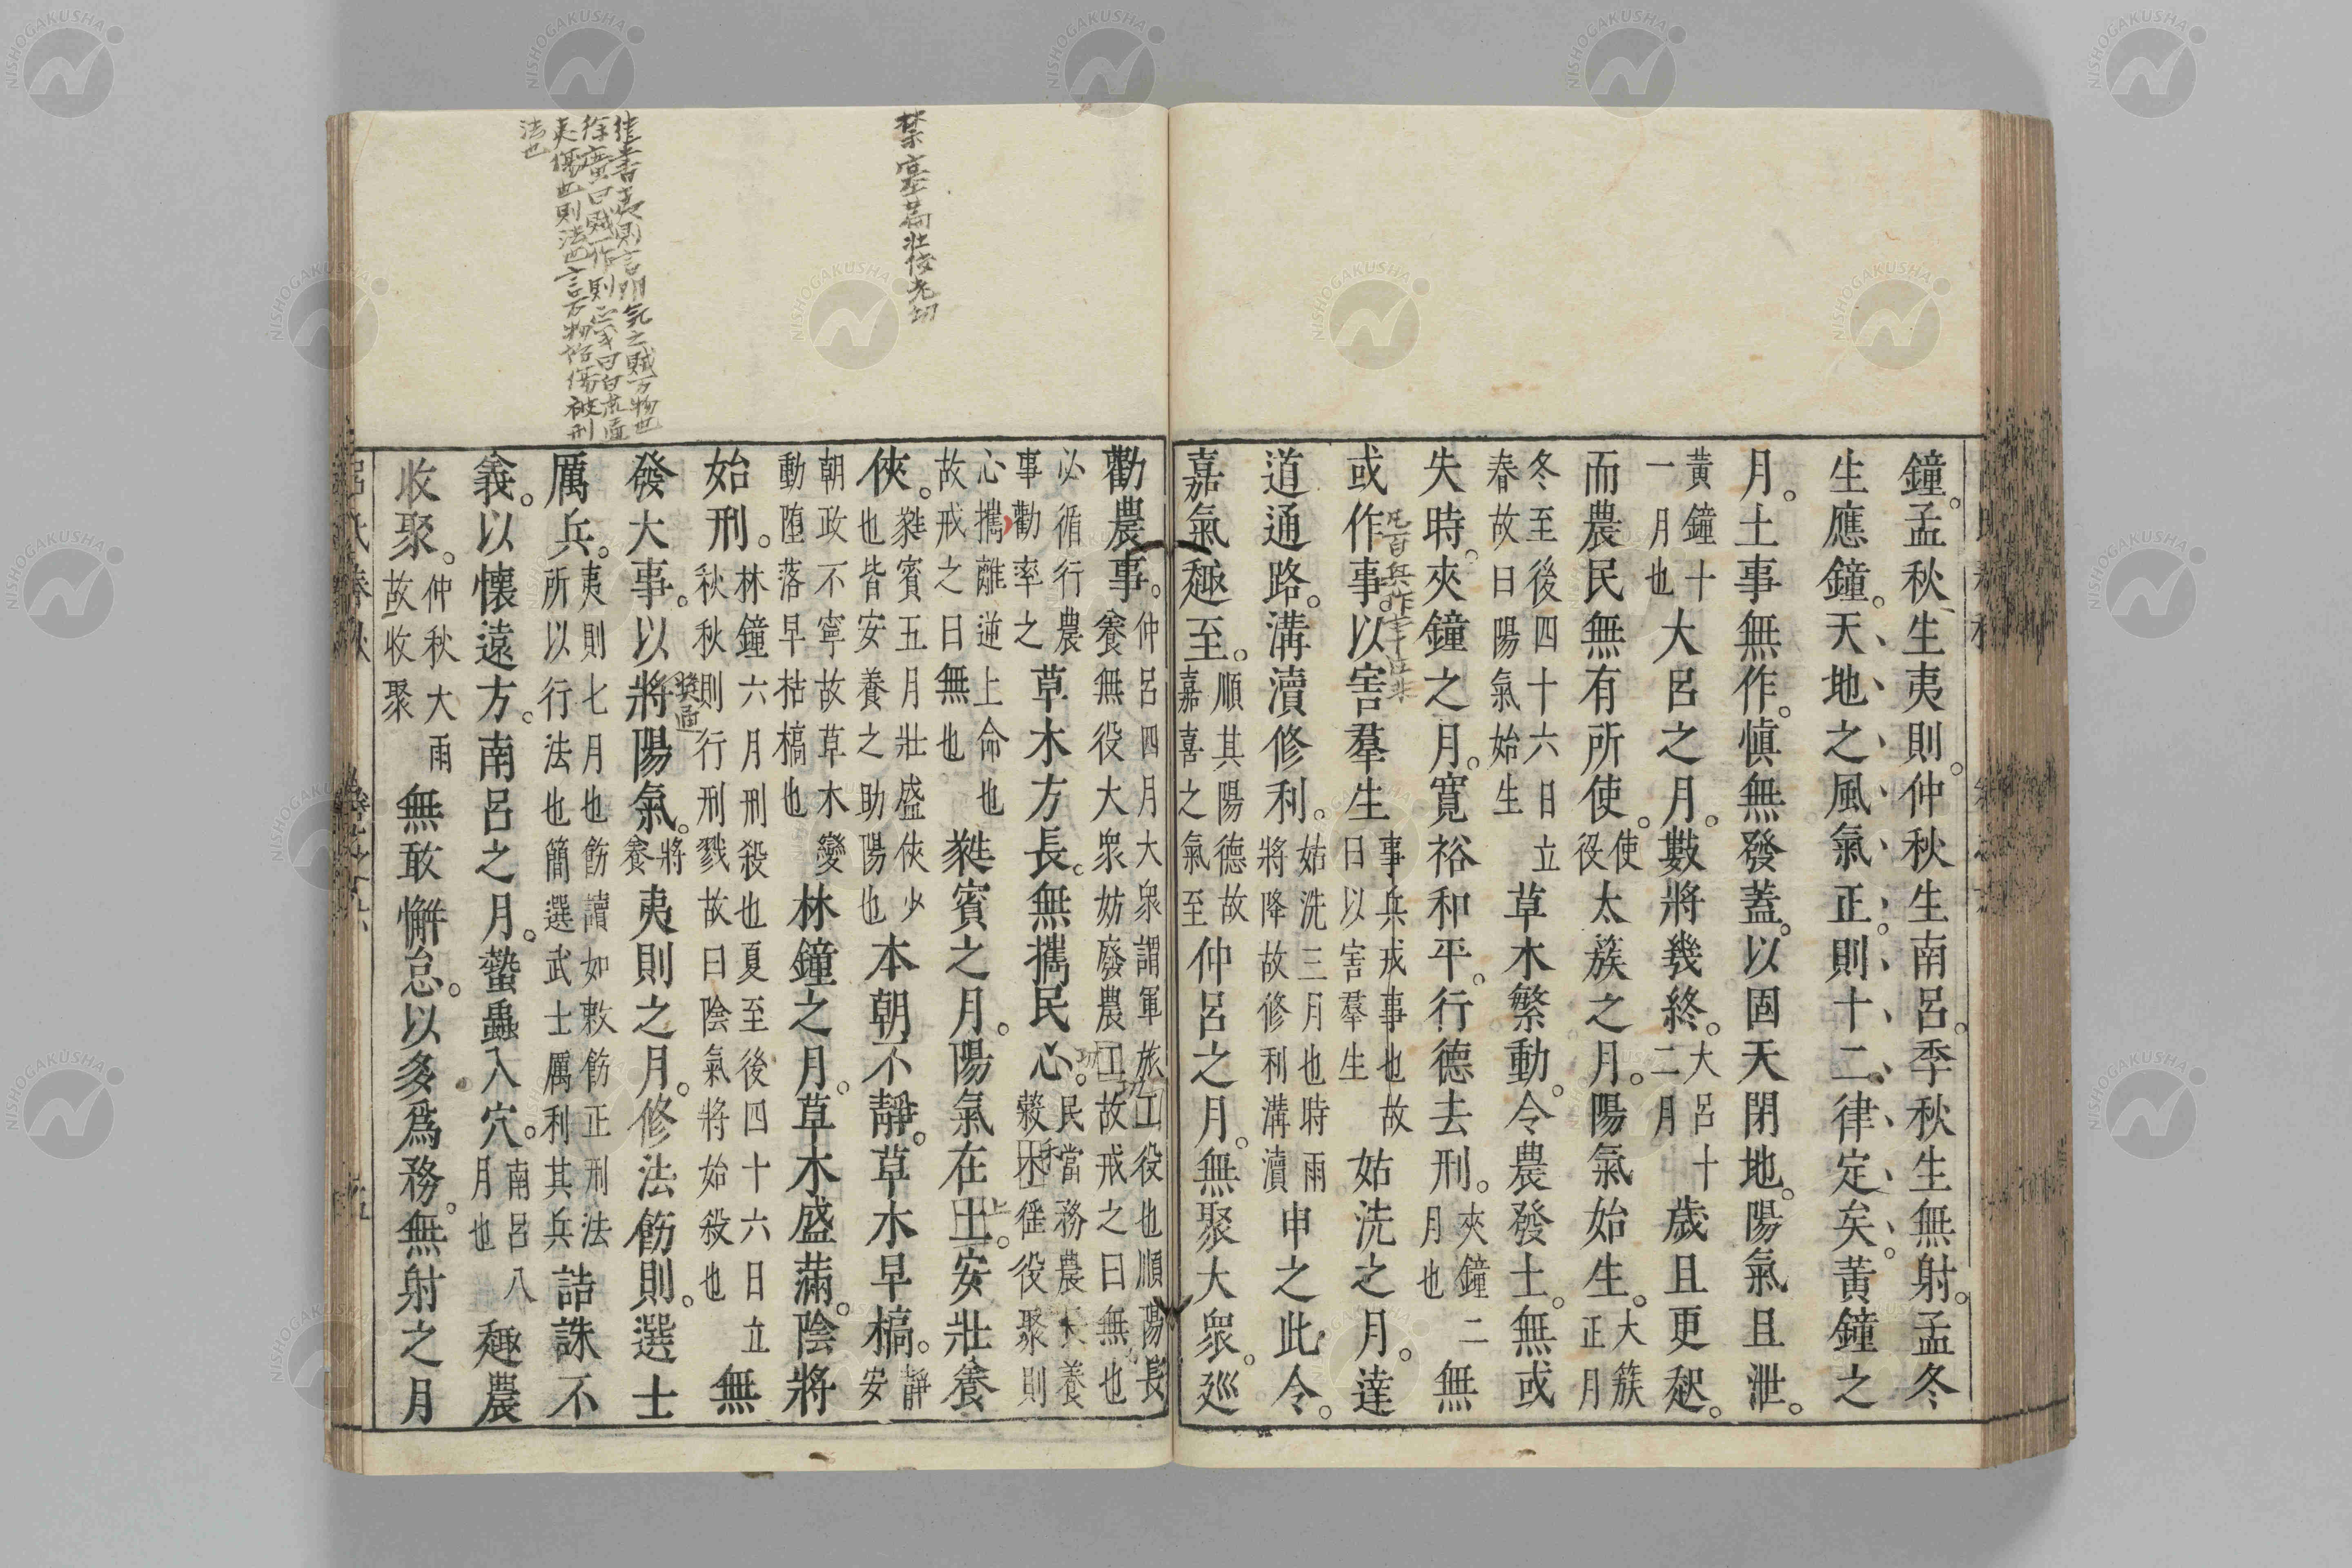 鐘。孟秋生夷則。仲秋生南呂。季秋生無射。孟冬
生應鐘。天地之風氣正。則十二律定矣。黃鐘之
月。土事無作。愼無發蓋。以固天閉地。陽氣且泄。
黃鐘十一月也大呂之月。數將幾終。大呂十二月歲且更起。
而農民無有所使。使役太蔟之月。陽氣始生。大簇正月
冬至後四十六日立春故曰陽氣始生草木繁動。令農發土。無或
失時。夾鐘之月。寬裕和平。行德去刑。夾鐘二月也無
或作事。以害羣生事兵戎事也故曰以害羣生姑洗之月。達
道通路。溝瀆修利。姑洗三月也時雨將降故修利溝瀆申之此令。
嘉氣趣至。順其陽德故嘉喜之氣至仲呂之月。無聚大衆。巡
勸農事。仲呂四月大衆謂軍旅工役也順陽長養無役大衆妨廢農工故戒之曰無也
必循行農事勸率之草木方長。無攜民心。民當務農長養穀困徭役聚則
心攜離逆上命也故戒之曰無也蕤賓之月。陽氣在土。安壯養
俠。蕤賓五月壯盛俠少也皆安養之助陽也本朝不靜。草木早槁。靜安
朝政不寧故草木變動墮落早枯槁也林鐘之月。草木盛滿。陰將
始刑。林鐘六月刑殺也夏至後四十六日立秋秋則行刑戮故曰陰氣將始殺也無
發大事。以將陽氣。將養夷則之月。修法飭則。選士
厲兵。夷則七月也飭讀如敕飭正刑法所以行法也簡選武士厲利其兵詰誅不
義。以懷遠方。南呂之月。蟄蟲入穴。南呂八月也趣農
收聚。仲秋大雨故收聚無敢懈怠。以多爲務。無射之月
NISHOGAKUSHA